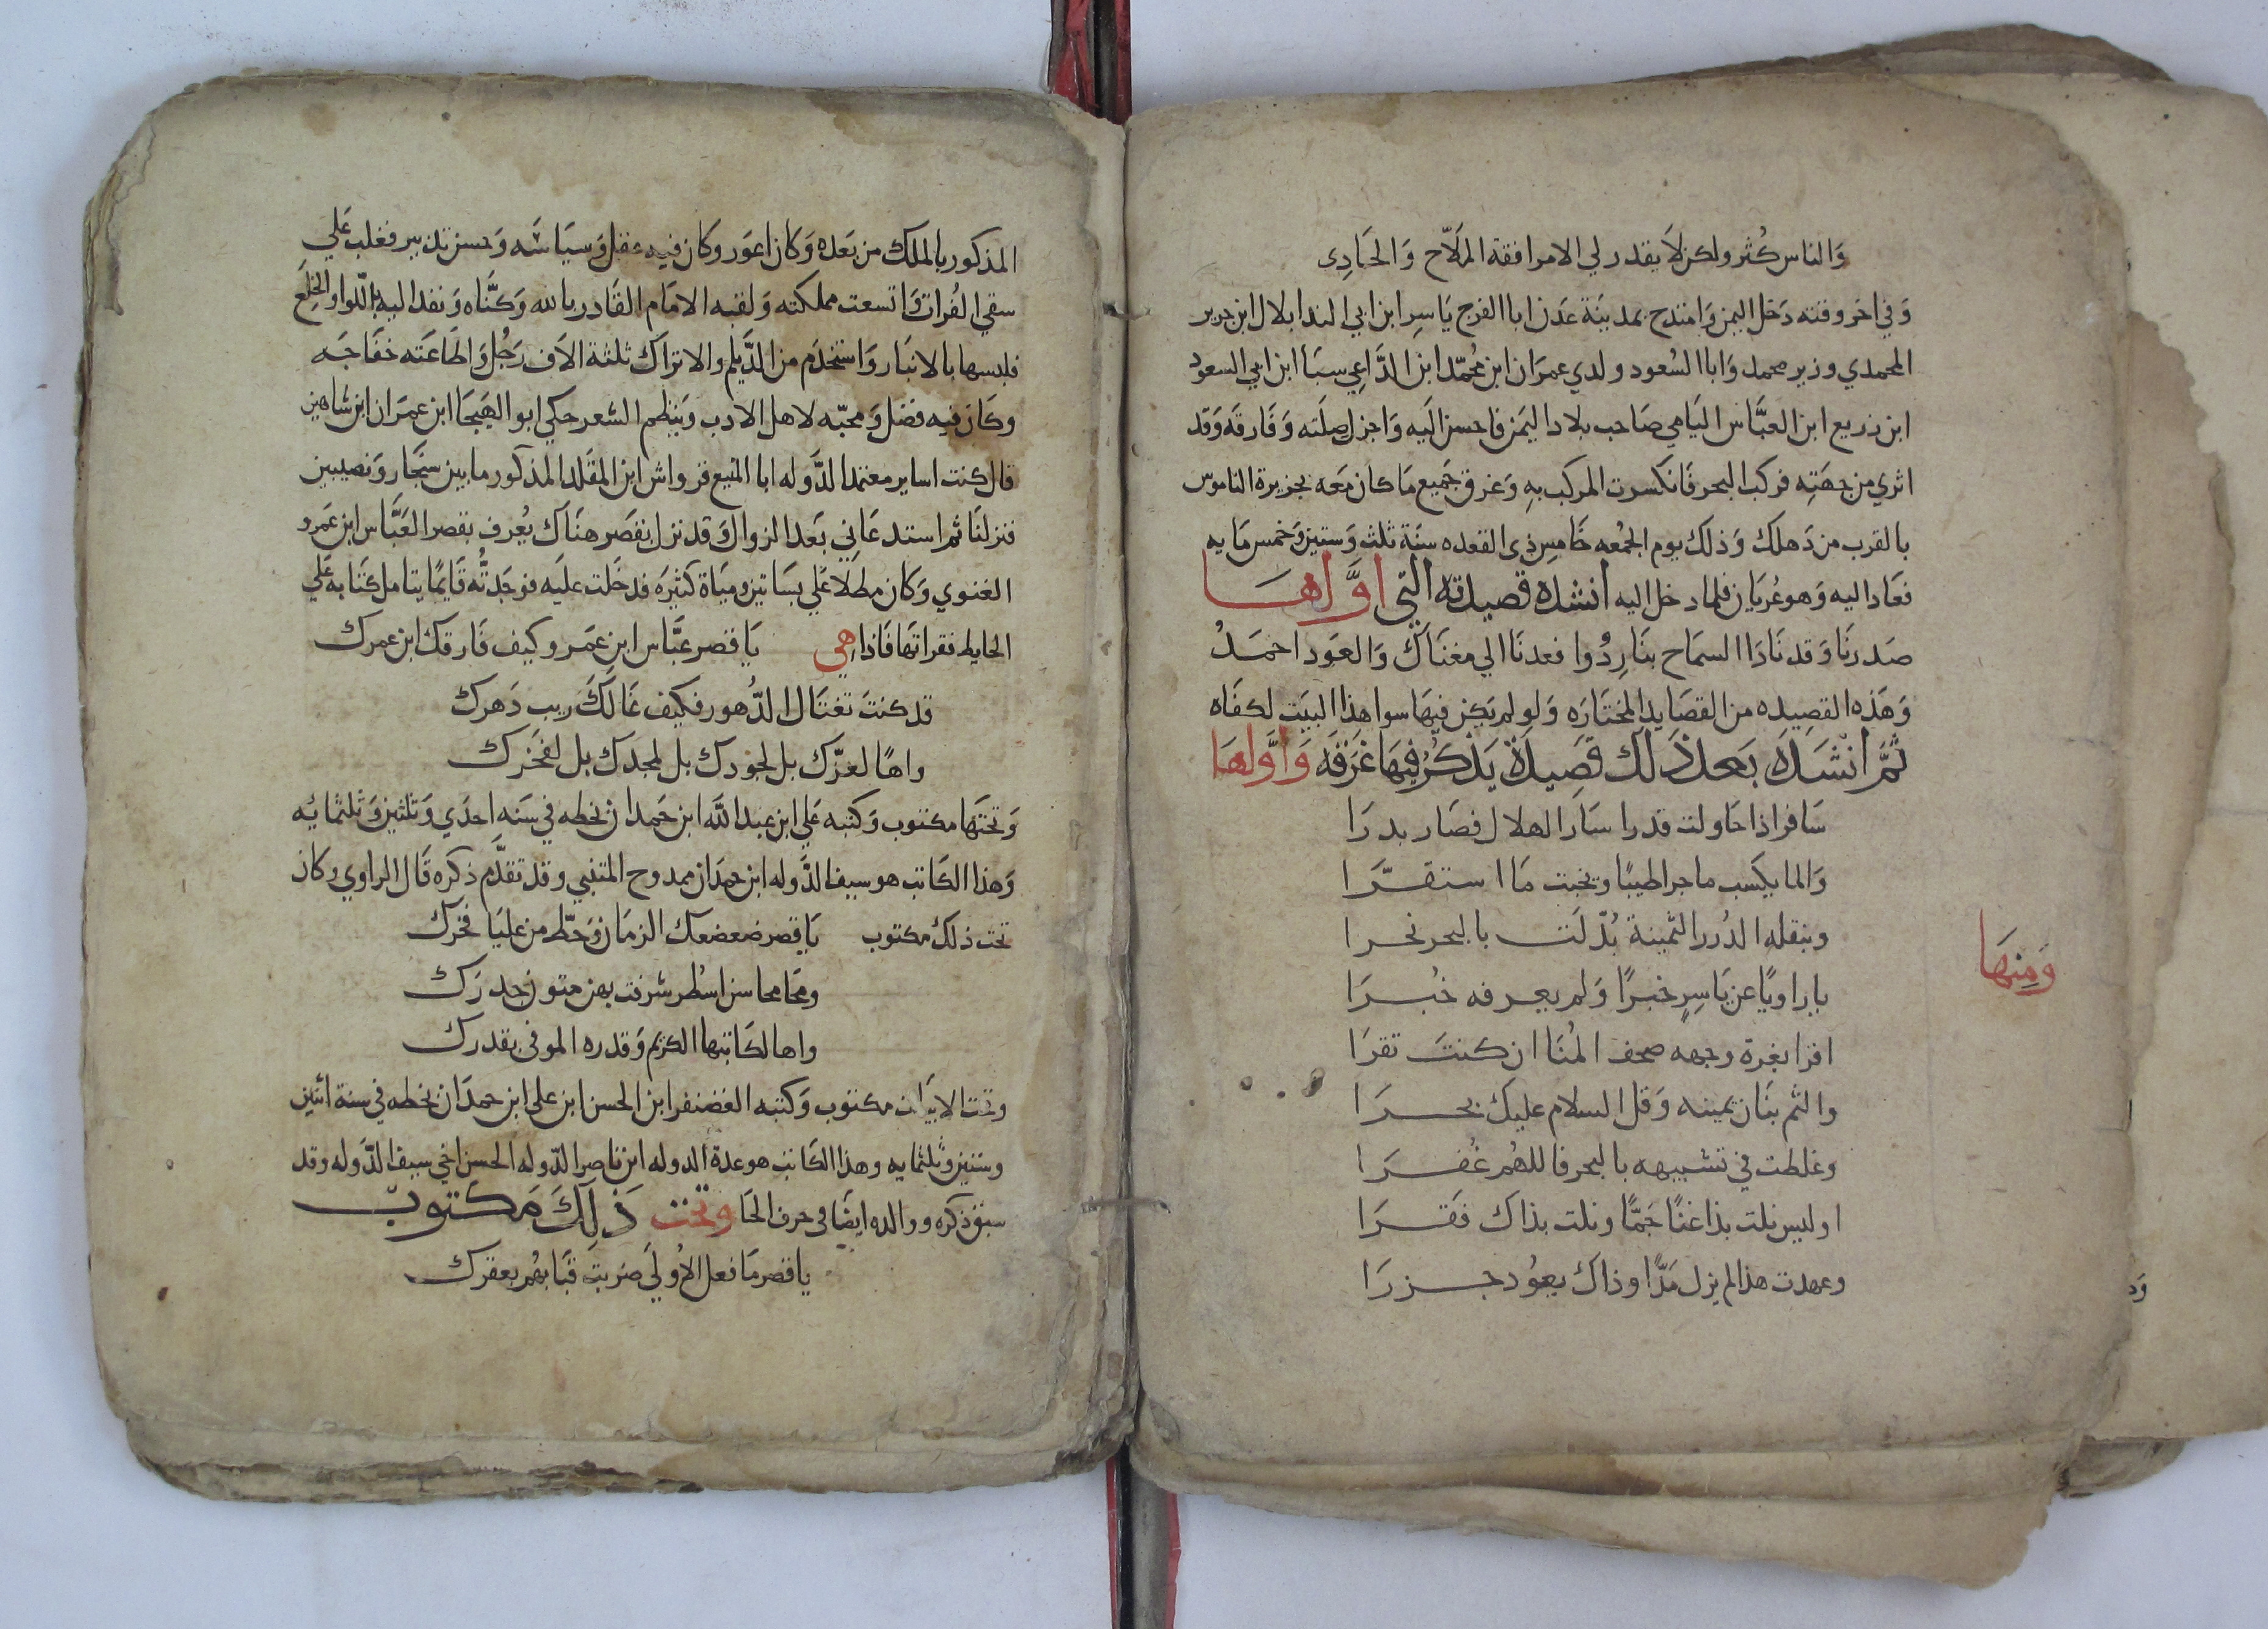 والناس كُثر ولكن لا يقدر لي الا مرافقة الملاّح والحادِى
وفي اخر وقته دخل اليمن وامتدح بمدينة عدن ابا الفرج ياسر ابن ابي الندا بلال ابن جرير
المحمدي وزير محمد وابا السُعود ولدي عمران ابن محمّد ابن الدَّاعِي سبأ ابن ابي السعود
ابن زريع ابن العبَّاس اليامي صاحب بلاد اليمن فاحسن اليه واجزل صلته وفارقه وقد
اثري من جهته فركب البحر فانكسرت المركب بهِ وغرق جميع ما كان معه بجزيرة الناموس
بالقرب من دهلك وذلك يوم الجمُعه خامس ذى القعده سنة ثلث وستين وخمس مايه
فعاد اليه وهو عُريان فلما دخل اليه انشده قصيدته التي اوَّلها
صدرنا وقد نادا السماح بنا رِدُوا فعدنا الي مغناك والعود احمدُ
وهذه القصيده من القصايد المختاره ولو لم يكن فيها سوا هذا البيت لكفاه
ثمَّ انشده بعد ذلك قصيدة يذكر فيها غرقه واوَّلها
سافر اذا حاولت قدرا سار الهلال فصار بدرا
والما يكسب ما جرا طيبًا ويخبث ما استقرّا
وبنقله الدُرر الثمينة بُدّلت بالبحر نحرا
ومنها
يا راويًا عن ياسِرٍ خبرًا ولم يعرفه خُبرَا
اقرا بغرة وجهه صحف المُنا ان كنت تقرَا
والثم بنان يمينه وقل السلام عليك بحرَا
وغلطت في تشبيهه بالبحر فاللهُم غُفرَا
اوليس نلت بذا غنًا جمًّا ونلت بذاك فقرَا
وعهدت هذا لم يزل مدًّا وذاك يعوُد جزرَا
المذكور بالملك من بعده وكان اعور وكان فيه عقل وسياسَه وحسن تدبير فغلب علي
سقي الفُرات واتسعت مملكته ولقبه الامام القادر بالله وكنَّاه ونفد اليه باللوا والخِلَع
فلبسها بالانبار واستخدم من الدَّيلم والاتراك ثلثة الاف رجُل واطاعته خفاجَه
وكان فيه فضل ومحبّه لاهل الادب وينظم الشعر حكي ابو الهيجا ابن عمران ابن شاهين
قال كنت اساير معتمد الدَّوله ابا المنيع قرواش ابن المقلد المذكور ما بين سنجار ونصيبين
فنزلنا ثم استدعاني بعد الزوال وقد نزل بقصر هناك يُعرف بقصر العبَّاس ابن عمرو
الغنوي وكان مطلا علي بساتين ومياة كثيره فدخلت عليه فوجدتُه قايمًا يتامل كتابه علي
الحايط فقراتها فاذا هي يا قصر عبَّاس ابن عمرو كيف فارقك ابن عمرك
قد كنت تغتال الدُّهور فكيف غالكَ ريب دهرك
واهًا لعزّك بل لجودك بل لمجدك بل لفخرك
وتحتها مكتوب وكتبه علي ابن عبد الله ابن حمدان بخطه في سنه احدي وثلثين وثلثمايه
وهذا الكاتب هو سيف الدَّوله ابن حمدان ممدوح المتنبي وقد تقدَّم ذكره قال الراوي وكان
تحت ذلك مكتوب يا قصر ضعضعك الزمان وحطّ من عليا فخرك
ومحا محاسن اسُطر شرفت بهن متون جدرك
واها لكاتبها الكريم وقدره الموفى بقدرك
وتحت الابيات مكتوب وكتبه الغضنفر ابن الحسن ابن على ابن حمدان بخطه في سنة اثنين
وستين وثلثمايه وهذا الكاتب هو عدة الدوله ابن ناصر الدّوله الحسن اخي سيف الدَّوله وقد
سبق ذكره ووالده ايضا في حرف الحا وتحت ذلك مكتوب
يا قصر ما فعل الأُولَي ضربت قبابهُم بعقرك